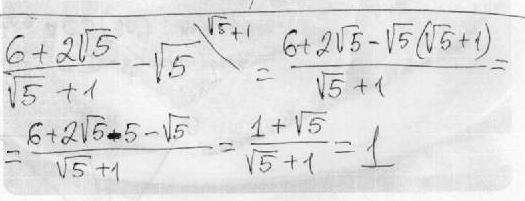 (6+2√5)/(√5+1) - √5 \ √5+1 = (6+2√5-√5(√5+1))/(√5+1) =
= (6+2√5-5-√5)/(√5+1) = (1+√5)/(√5+1) = 1